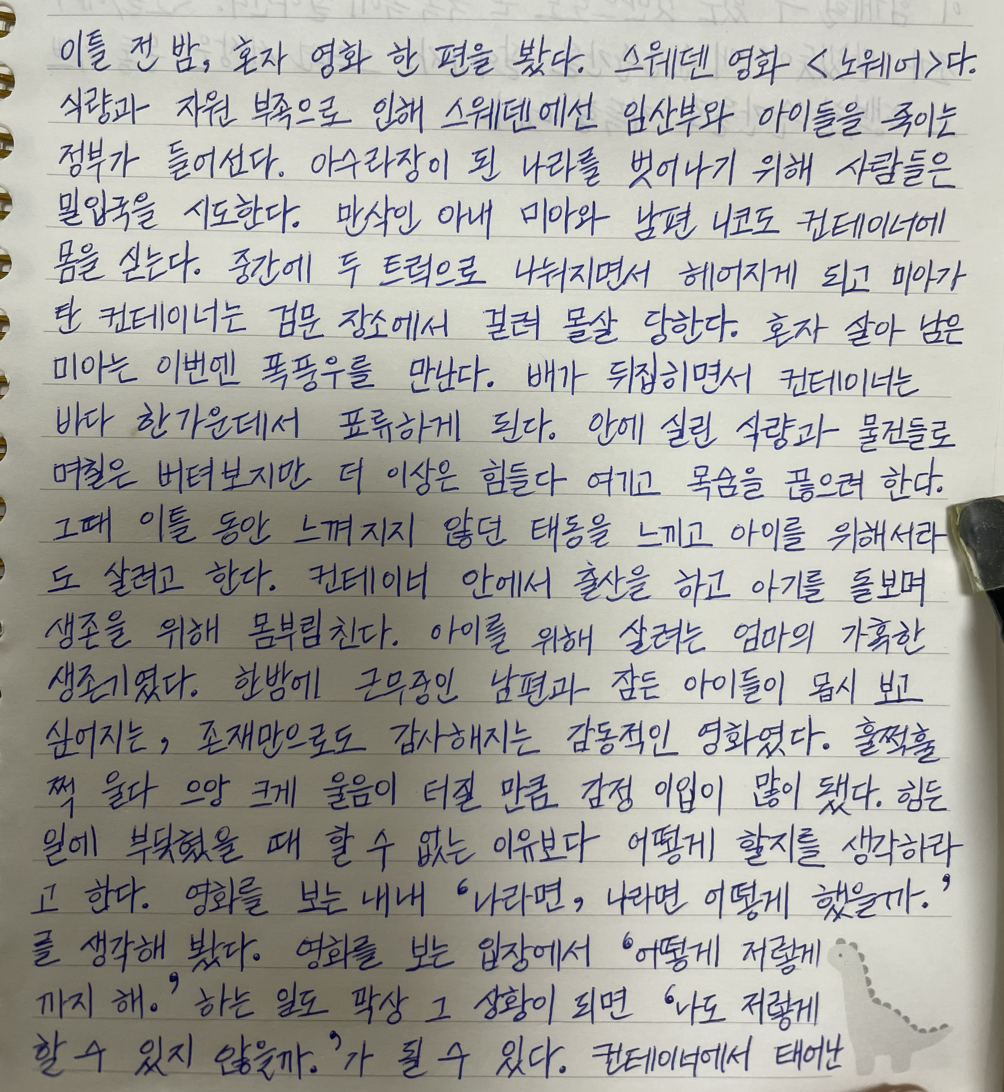 이틀 전 밤, 혼자 영화 한 편을 봤다. 스웨덴 영화 <노웨어>다.
식량과 자원 부족으로 인해 스웨덴에선 임산부와 아이들을 죽이는
정부가 들어선다. 아수라장이 된 나라를 벗어나기 위해 사람들은
밀입국을 시도한다. 만삭인 아내 미아와 남편 니코도 컨테이너에
몸을 싣는다. 중간에 두 트럭으로 나눠지면서 헤어지게 되고 미아가
탄 컨테이너는 검문 장소에서 걸려 몰살 당한다. 혼자 살아 남은
미아는 이번엔 폭풍우를 만난다. 배가 뒤집히면서 컨테이너는
바다 한가운데서 표류하게 된다. 안에 실린 식량과 물건들로
며칠은 버텨보지만 더 이상은 힘들다 여기고 목숨을 끊으려 한다.
그때 이틀 동안 느껴지지 않던 태동을 느끼고 아이를 위해서라
도 살려고 한다. 컨테이너 안에서 출산을 하고 아기를 돌보며
생존을 위해 몸부림친다. 아이를 위해 살려는 엄마의 가혹한
생존기였다. 한밤에 근무중인 남편과 잠든 아이들이 몹시 보고
싶어지는, 존재만으로도 감사해지는 감동적인 영화였다. 훌쩍훌
쩍 울다 으앙 크게 울음이 터질 만큼 감정 이입이 많이 됐다. 힘든
일에 부딪혔을 때 할 수 없는 이유보다 어떻게 할지를 생각하라
고 한다. 영화를 보는 내내 ‘나라면, 나라면 어떻게 했을까.’
를 생각해 봤다. 영화를 보는 입장에서 ‘어떻게 저렇게
까지 해.’ 하는 일도 막상 그 상황이 되면 ‘나도 저렇게
할 수 있지 않을까.’가 될 수 있다. 컨테이너에서 태어난